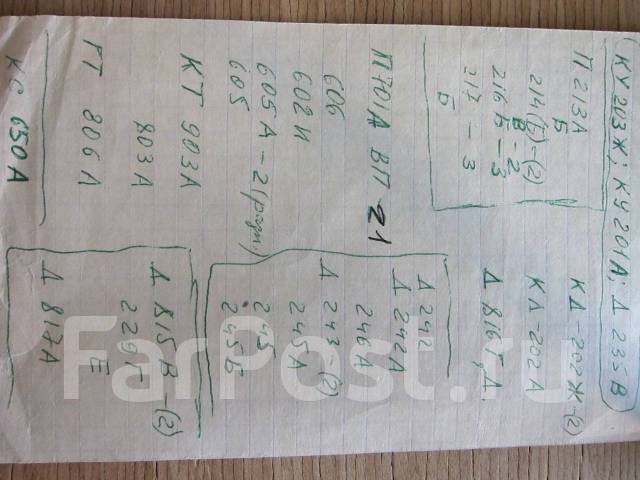 КУ 203Ж; КУ 201А; Д 235В
П 213А
Б
214(Б)-(2)
В - 2
216 Б - 3
217 - 3
Б
КД-202Ж-(2)
КД-202А
Д 816Г,Д
П701А ВП 21
606
602И
605А-2(разн.)
605
КТ 903А
803А
ГТ 806А
КС 650А
Д 242
Д 242А
246А
Д 243-(2)
245А
245
245Б
Д 815 В-(2)
229Г
Е
Д 817А
FarPost.ru